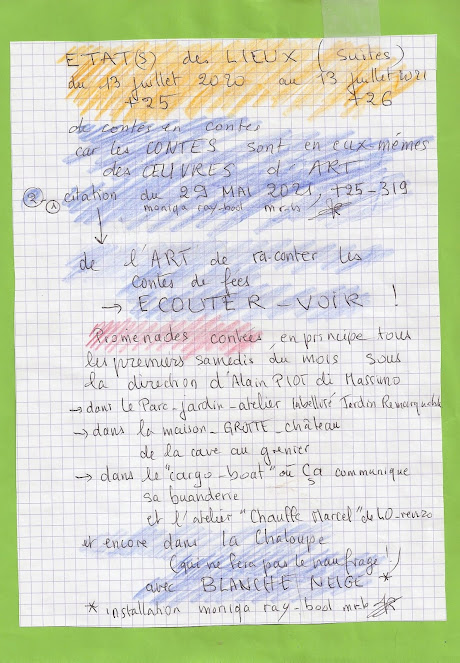 ETAT(S) des LIEUX (suites)
du 13 juillet 2020 au 13 juillet 2021
+25 +26
de contes en contes
car les CONTES sont en eux-mêmes
des ŒUVRES d'ART
2. 1 citation du 29 MAI 2021, +25-319
moniqa ray-bool mrb
de l'ART de ra-conter les
contes de fées
→ ECOUTER-VOIR !
Promenades contées, en principe tous
les premiers samedis du mois sous
la direction d'Alain PIOT di Massimo
→ dans le Parc-jardin-atelier labellisé Jardin Remarquable
→ dans la maison-GROTTE-château
de la cave au grenier
→ dans le "cargo-boat" où Ça communique
sa buanderie
et l'atelier "Chauffe Marcel" de
et encore dans la Chaloupe
(qui ne fera pas le naufrage !)
avec BLANCHE NEIGE *
* installation moniqa ray-bool mrb